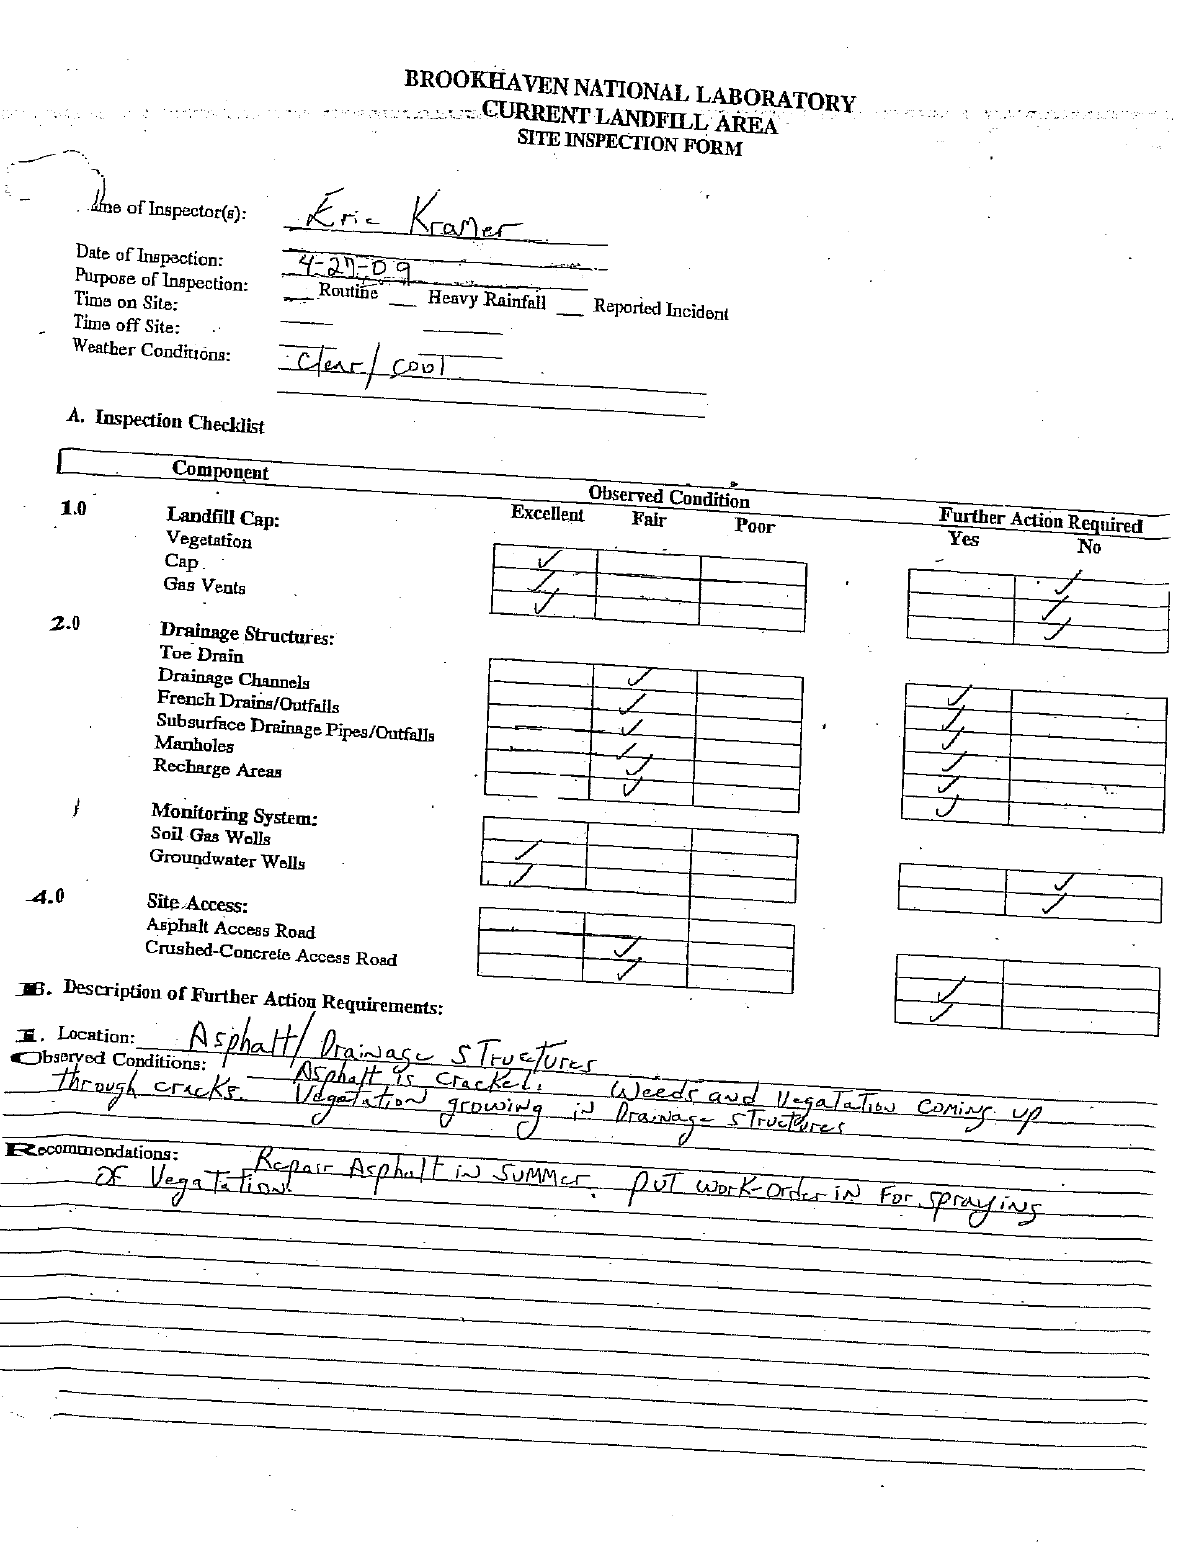 BROOKHAVEN NATIONAL LABORATORY
CURRENT LANDFILL AREA
SITE INSPECTION FORM
me of Inspector(s): Eric Kramer
Date of Inspection: 4-27-09
Purpose of Inspection: __ Routine __ Heavy Rainfall __ Reported Incident
Time on Site:
Time off Site:
Weather Conditions: Clear/cool
A. Inspection Checklist
Component Observed Condition Further Action Required
Excellent Fair Poor Yes No
1.0 Landfill Cap:
Vegetation ✓ ✓
Cap ✓ ✓
Gas Vents ✓ ✓
2.0 Drainage Structures:
Toe Drain ✓ ✓
Drainage Channels ✓ ✓
French Drains/Outfalls ✓ ✓
Subsurface Drainage Pipes/Outfalls ✓ ✓
Manholes ✓ ✓
Recharge Areas ✓ ✓
Monitoring System:
Soil Gas Wells ✓ ✓
Groundwater Wells ✓ ✓
4.0 Site Access:
Asphalt Access Road ✓ ✓
Crushed-Concrete Access Road ✓ ✓
B. Description of Further Action Requirements:
Location: Asphalt/Drainage structures
Observed Conditions: Asphalt is cracked. Weeds and vegatation coming up
through cracks. Vegatation growing in Drainage structures
Recommendations: Repair Asphalt in summer. Put work-order in for spraying
of vegatation.